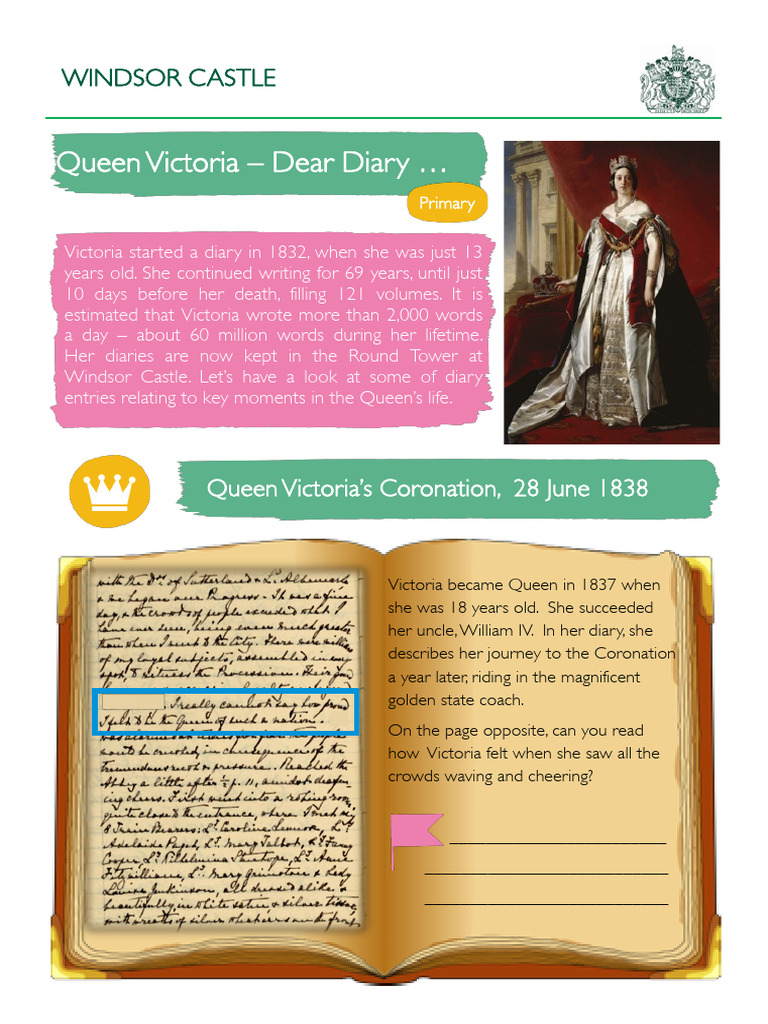 WINDSOR CASTLE
Queen Victoria – Dear Diary …
Primary
Victoria started a diary in 1832, when she was just 13
years old. She continued writing for 69 years, until just
10 days before her death, filling 121 volumes. It is
estimated that Victoria wrote more than 2,000 words
a day – about 60 million words during her lifetime.
Her diaries are now kept in the Round Tower at
Windsor Castle. Let's have a look at some of diary
entries relating to key moments in the Queen's life.
Queen Victoria's Coronation, 28 June 1838
with the Dss. of Sutherland & Ly. Albemarle
& we began our Progress. It was a fine
day, & the crowds of people exceeded what I
have ever seen, being even much greater
than when I went to the City. There were millions
of my loyal subjects, assembled in every
spot, to witness the Procession. Their good
I really cannot say how proud
I felt to be the Queen of such a nation.
was alarmed at times for fear the people
would be crushed, in consequence of the
tremendous rush & pressure. Reached the
Abbey a little after ½ p. 11, amidst deafen-
ing cheers. First went into a robing room,
quite close to the entrance, where I met my
8 Train Bearers: Ly. Caroline Lennox, Ly.
Adelaide Paget, Ly. Mary Talbot, Ly. Fanny
Cowper, Ly. Wilhelmina Stanhope, Ly. Anne
Fitzwilliam, Ly. Mary Grimston & Lady
Louisa Jenkinson, all dressed alike &
beautifully, in white satin, & silver tissue,
with wreaths of silver wheatears in the front,
Victoria became Queen in 1837 when
she was 18 years old. She succeeded
her uncle, William IV. In her diary, she
describes her journey to the Coronation
a year later, riding in the magnificent
golden state coach.
On the page opposite, can you read
how Victoria felt when she saw all the
crowds waving and cheering?